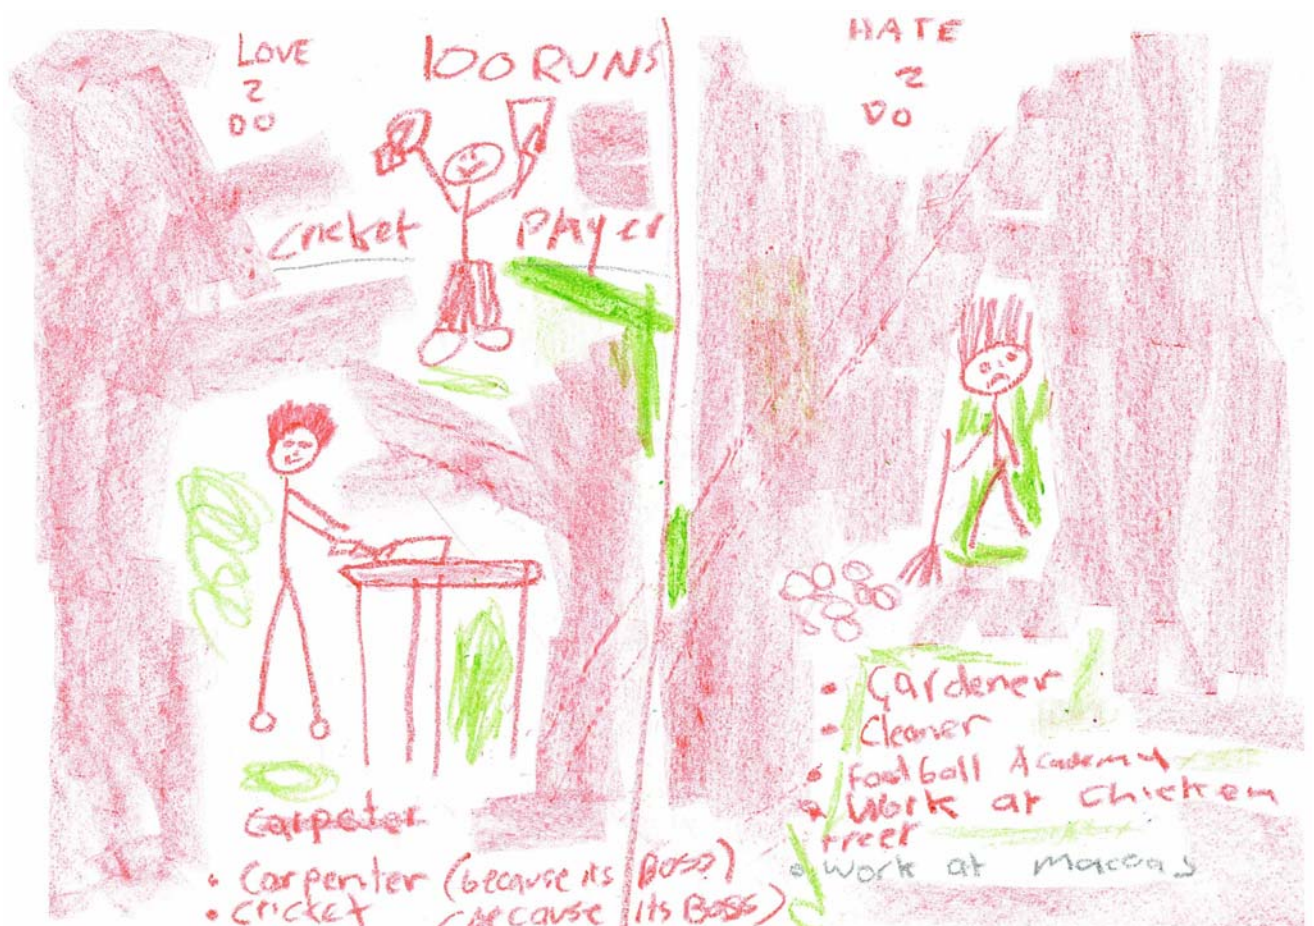 LOVE
2
DO
100 RUNS
Cricket Player
Carpeter
• Carpenter (because its BOSS)
• Cricket (because its BOSS)
HATE
2
DO
• Gardener
• Cleaner
• Football Academy
• Work at Chicken
Treet
• Work at Maccas